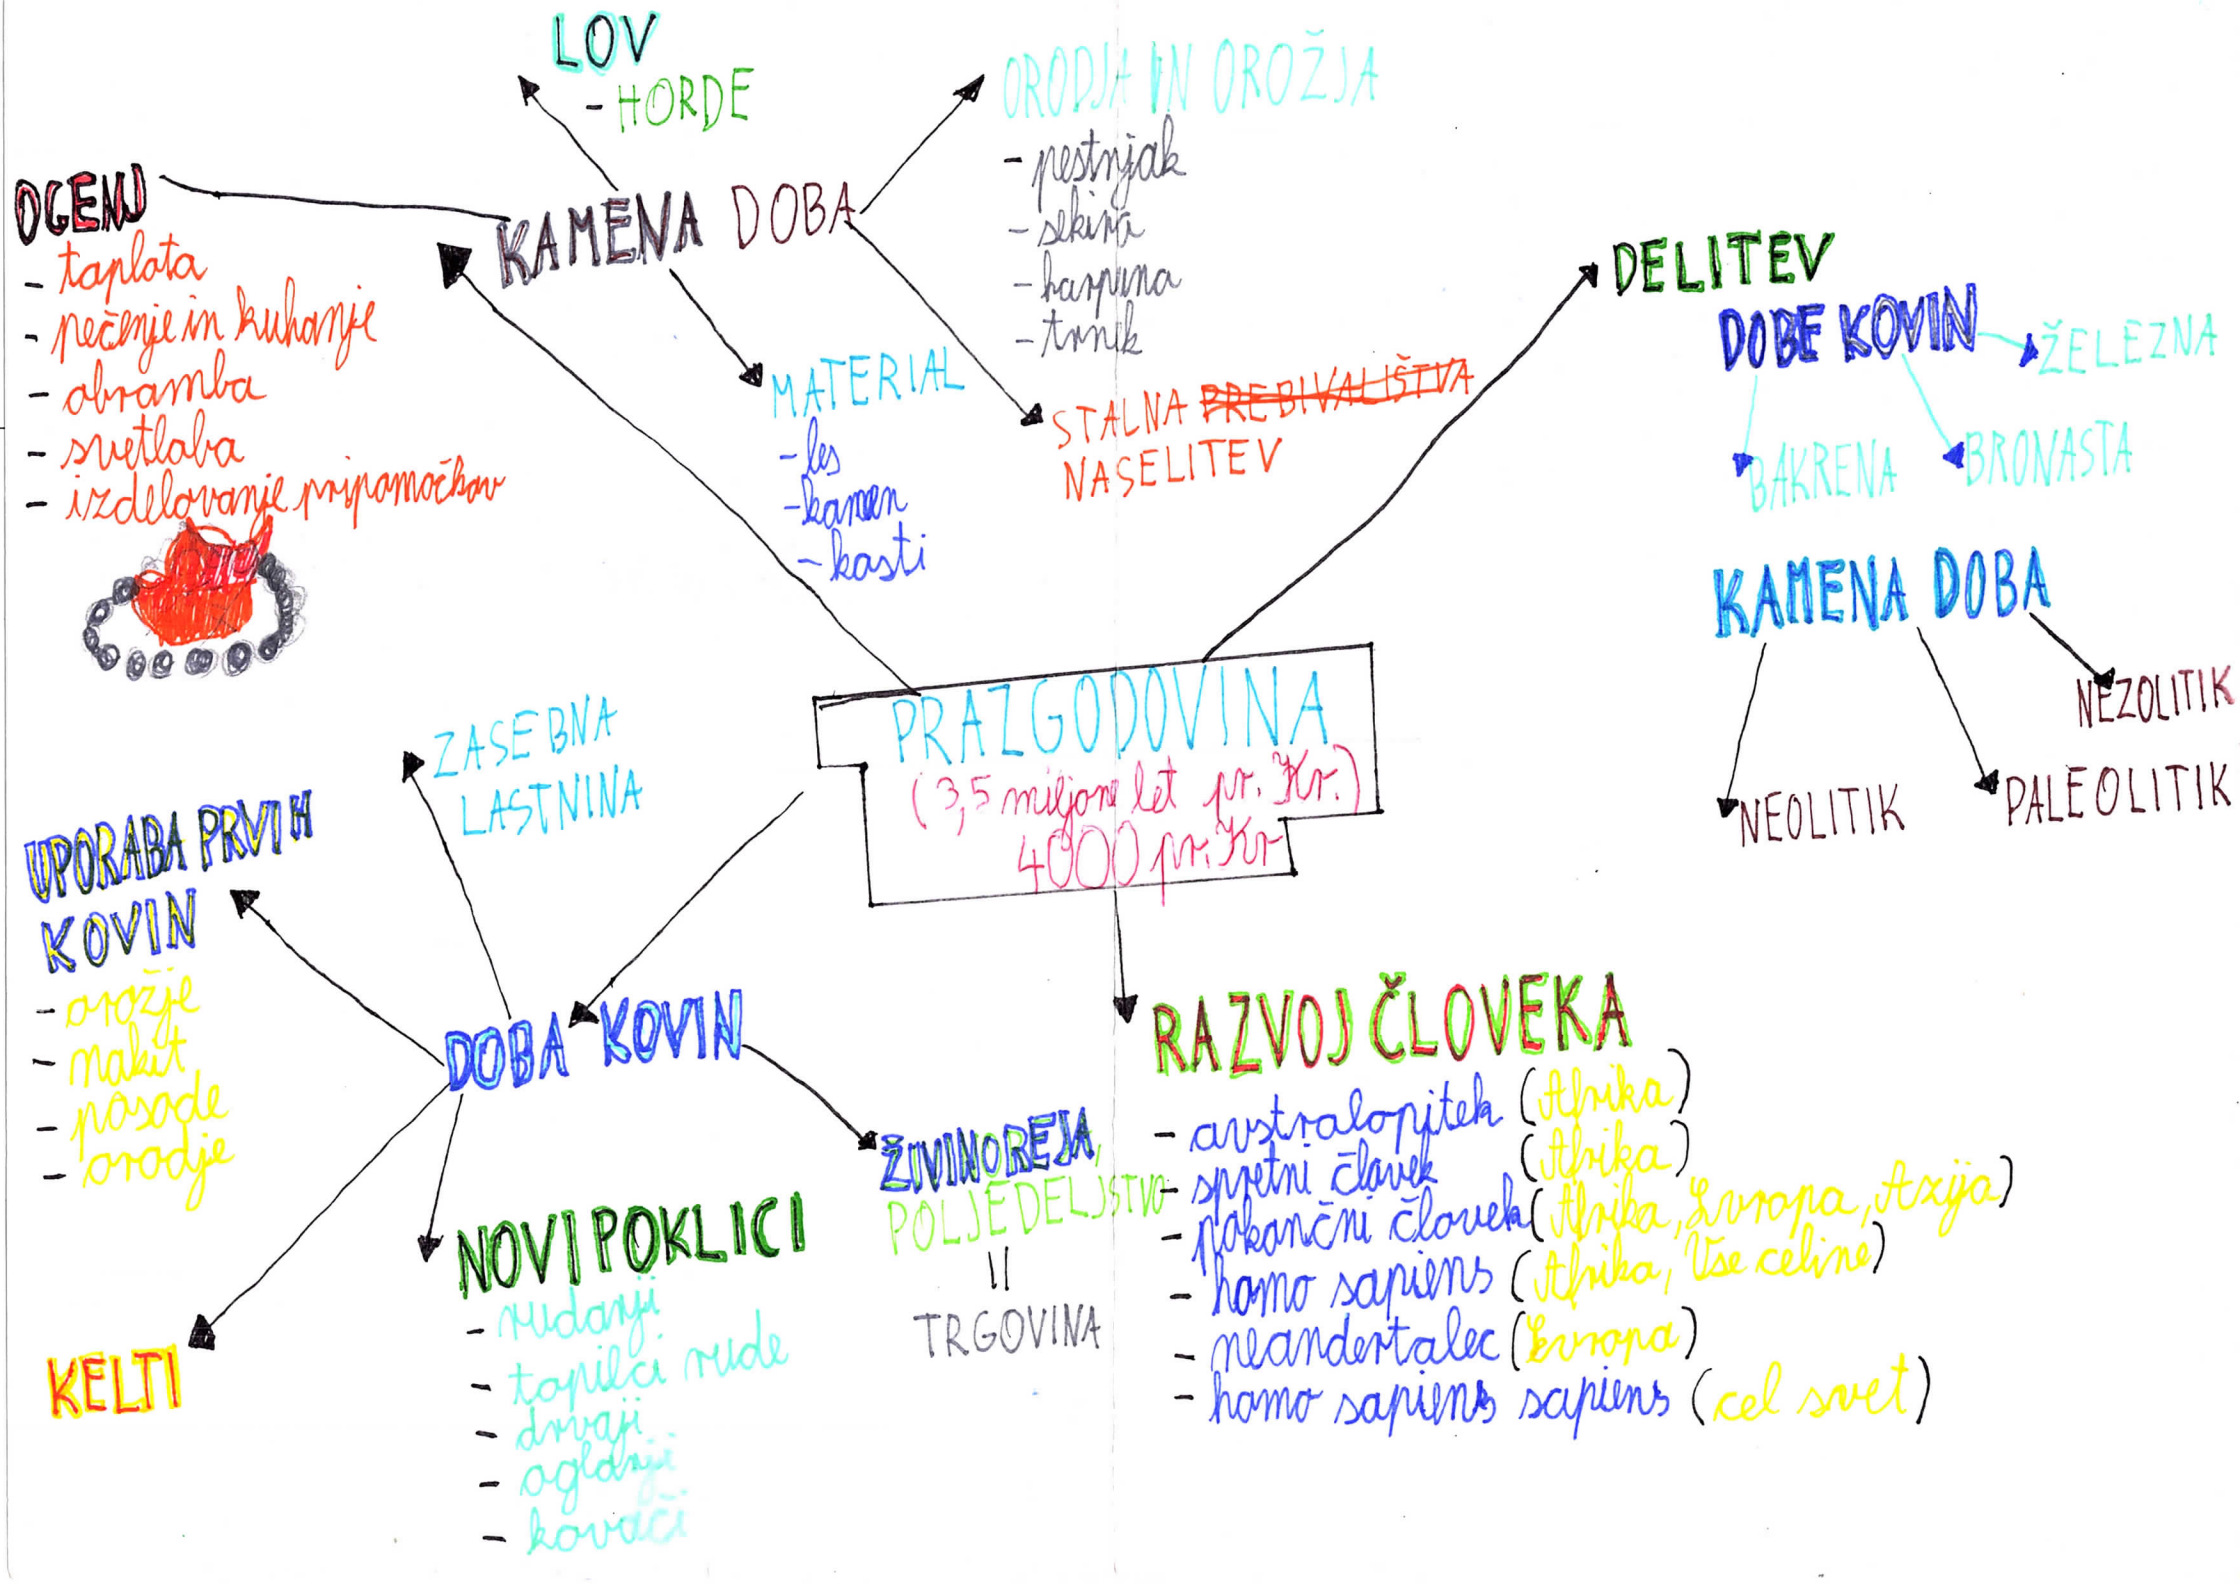 LOV
- HORDE
ORODJA IN OROŽJA
- pestnjak
- sekira
- harpuna
- trnek
OGENJ
- toplota
- pečenje in kuhanje
- obramba
- svetloba
- izdelovanje pripomočkov
KAMENA DOBA
MATERIAL
- les
- kamen
- kosti
STALNA PREBIVALIŠTVA
NASELITEV
DELITEV
DOBE KOVIN
ŽELEZNA
BAKRENA
BRONASTA
KAMENA DOBA
NEZOLITIK
NEOLITIK
PALEOLITIK
PRAZGODOVINA
(3,5 miljone let pr. Kr.)
4000 pr. Kr
ZASEBNA
LASTNINA
UPORABA PRVIH
KOVIN
- orožje
- nakit
- posode
- orodje
DOBA KOVIN
KELTI
NOVI POKLICI
- rudarji
- topilci rude
- drvaji
- oglarji
- kovači
ŽIVINOREJA,
POLJEDELJSTVO
TRGOVINA
RAZVOJ ČLOVEKA
- avstralopitek (Afrika)
- spretni človek (Afrika)
- pokončni človek (Afrika, Evropa, Azija)
- homo sapiens (Afrika, Vse celine)
- neandertalec (Evropa)
- homo sapiens sapiens (cel svet)